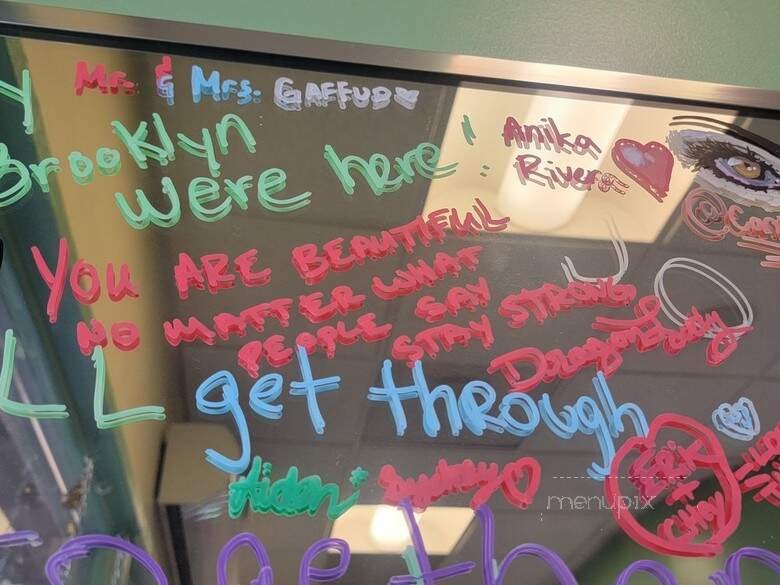 Y
Mr. & Mrs. GAFFUD
Brooklyn
were here!
Anika
Rivera
YOU ARE BEAUTIFUL
NO MATTER WHAT
PEOPLE SAY
STAY STRONG
DragonLady
LL get through
Aiden
Sydney
ERiK
+
CHAY
together
menupix